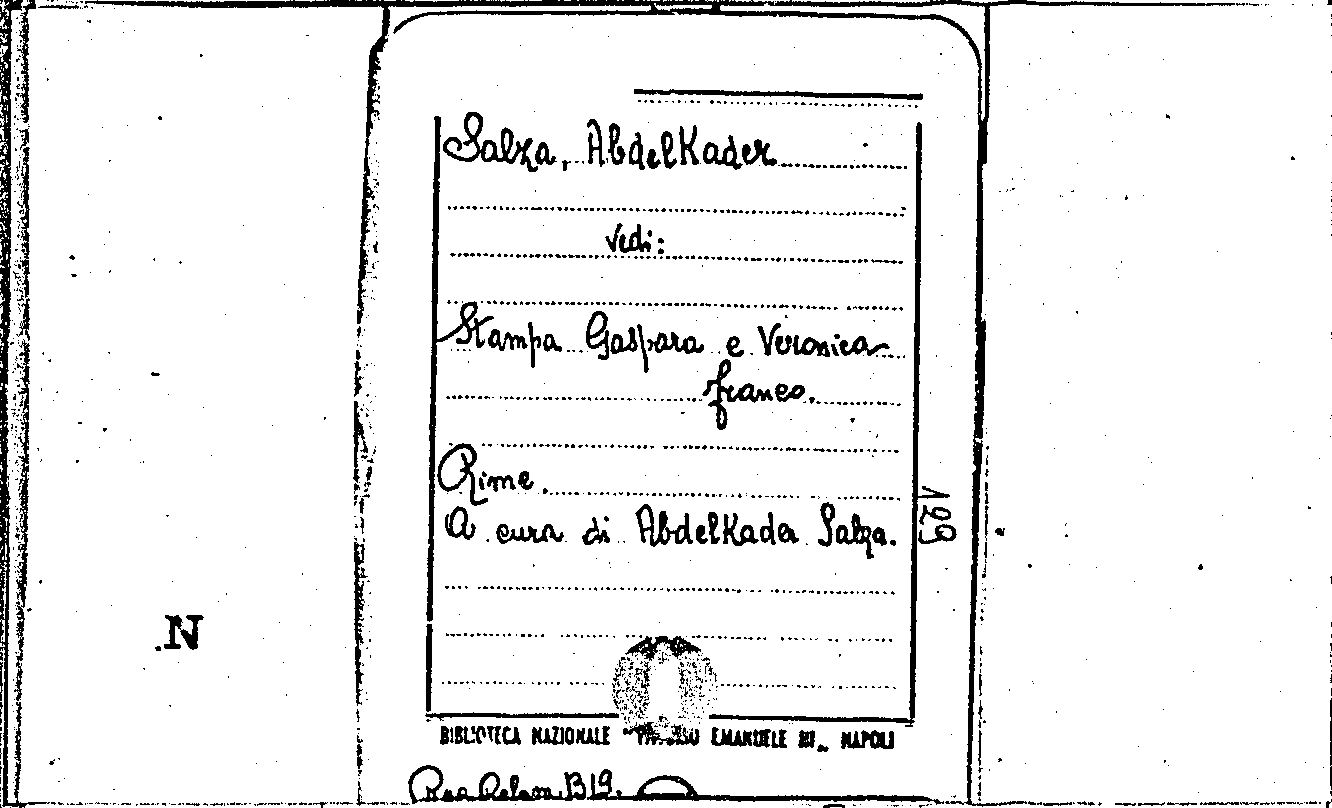 Salza, AbdelKader
vedi:
Stampa Gaspara e Veronica
franco.
Rime.
A cura di AbdelKader Salza.
129
N
BIBLIOTECA NAZIONALE EMANUELE III„ NAPOLI
B19.